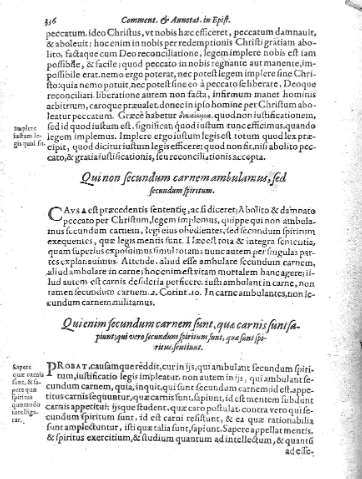 336 Comment. & Annotat. in Epist.
peccatum. ideo Christus, vt nobis hæc efficeret, peccatum damnauit,
& aboleuit: hoc enim in nobis per redemptionis Christi gratiam abo-
lito, factaque cum Deo reconciliatione, legem implere nobis est iam
possibile, & facile: quod peccato in nobis regnante aut manente, im-
possibile erat. nemo ergo poterat, nec potest legem implere sine Chri-
sto: quia nemo potuit, nec potest sine eo à peccato se liberare, Deoque
reconciliari. liberatione autem non facta, infirmum manet hominis
arbitrium, caroque præualet. donec in ipso homine per Christum abo-
leatur peccatum. Græcè habetur quod non iustificationem,
sed id quod iustum est, significat, quòd iustum tunc efficimus, quando
legem implemus. Implere ergo iustum legis est totum quod lex præ-
cipit, quod dicitur iustum legis efficere: quod non fit, nisi abolito pec-
cato, & gratia iustificationis, seu reconciliationis accepta.
Implere
iustum le-
gis quid sit.
Qui non secundum carnem ambulamus, sed
secundum spiritum.
CAVSA est præcedentis sententiæ, ac si diceret: Abolito & damnato
peccato per Christum, legem implemus, quippe qui non ambula-
mus secundum carnem, legi eius obedientes, sed secundum spiritum
exequentes, quæ legis mentis sunt. Hæc est tota & integra sententia,
quam superius exposuimus simul totam: nunc autem per singulas par-
tes explanamus. Attende. aliud esse ambulare secundum carnem,
aliud ambulare in carne: hoc enim est vitam mortalem hanc agere; il-
lud autem est carnis desideria perficere. iusti ambulant in carne, non
tamen secundum carnem. 2. Corint. 10. In carne ambulantes, non se-
cundum carnem militamus.
Qui enim secundum carnem sunt, quæ carnis sunt sa-
piunt: qui vero secundum spiritum sunt, quæ sunt spi-
ritus, sentiunt.
Sapere
quæ carnis
sunt, & sa-
pere quæ
spiritus
quomodo
intelliga-
tur.
PROBAT, causam que reddit, cur in ijs, qui ambulant secundum spiri-
tum, iustificatio legis impleatur. non autem in ijs, qui ambulant se-
cundum carnem, quia, inquit, qui sunt secundum carnem: id est appe-
titus carnis sequuntur, quæ carnis sunt, sapiunt, id est mentem subdunt
carnis appetitui: ijsque student. quæ caro postulat. contra vero qui se-
cundum spiritum sunt, id est carni resistunt, & ea quæ rationabilia
sunt amplectuntur, isti quæ talia sunt, sapiunt. Sapere appellat mentis,
& spiritus exercitium, & studium quantum ad intellectum, & quantū
ad effe-